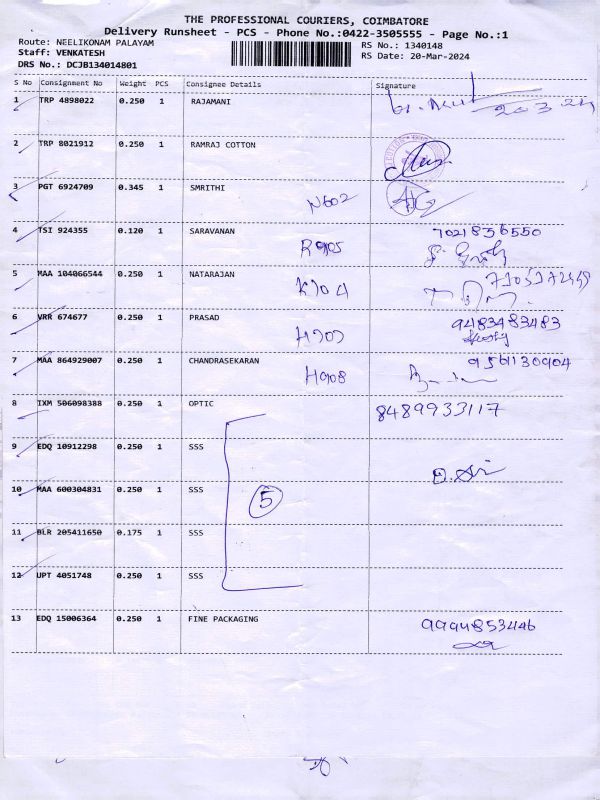 THE PROFESSIONAL COURIERS, COIMBATORE
Delivery Runsheet - PCS - Phone No.:0422-3505555 - Page No.:1
Route: NEELIKONAM PALAYAM
RS No.: 1340148
Staff: VENKATESH
RS Date: 20-Mar-2024
DRS No.: DCJB134014801
S No Consignment No Weight PCS Consignee Details Signature
1 TRP 4898022 0.250 1 RAJAMANI
2 TRP 8021912 0.250 1 RAMRAJ COTTON
3 PGT 6924709 0.345 1 SMRITHI N602
4 TSI 924355 0.120 1 SARAVANAN R905 7021836550
5 MAA 104066544 0.250 1 NATARAJAN K704
6 VRR 674677 0.250 1 PRASAD H707 9483483483
7 MAA 864929007 0.250 1 CHANDRASEKARAN H908 9561130904
8 IXM 506098388 0.250 1 OPTIC 8489933117
9 EDQ 10912298 0.250 1 SSS
10 MAA 600304831 0.250 1 SSS 5
11 BLR 205411650 0.175 1 SSS
12 UPT 4051748 0.250 1 SSS
13 EDQ 15006364 0.250 1 FINE PACKAGING 9994853446